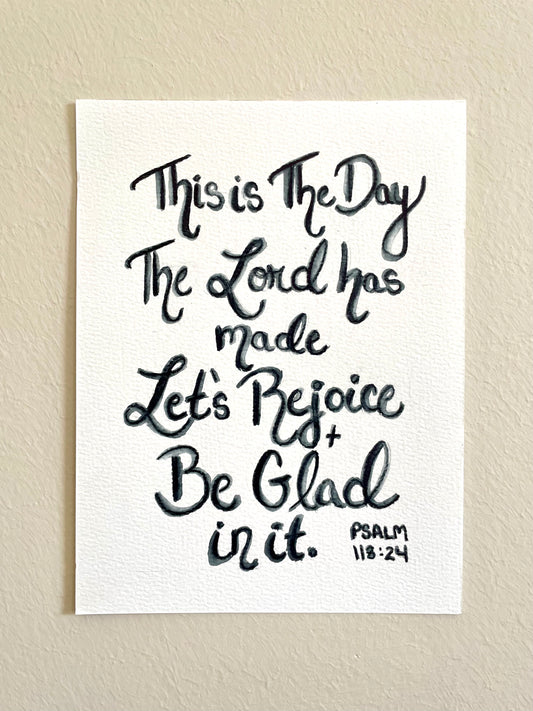 This is The Day
The Lord has
made
Let's Rejoice
+
Be Glad
in it.
PSALM
118:24